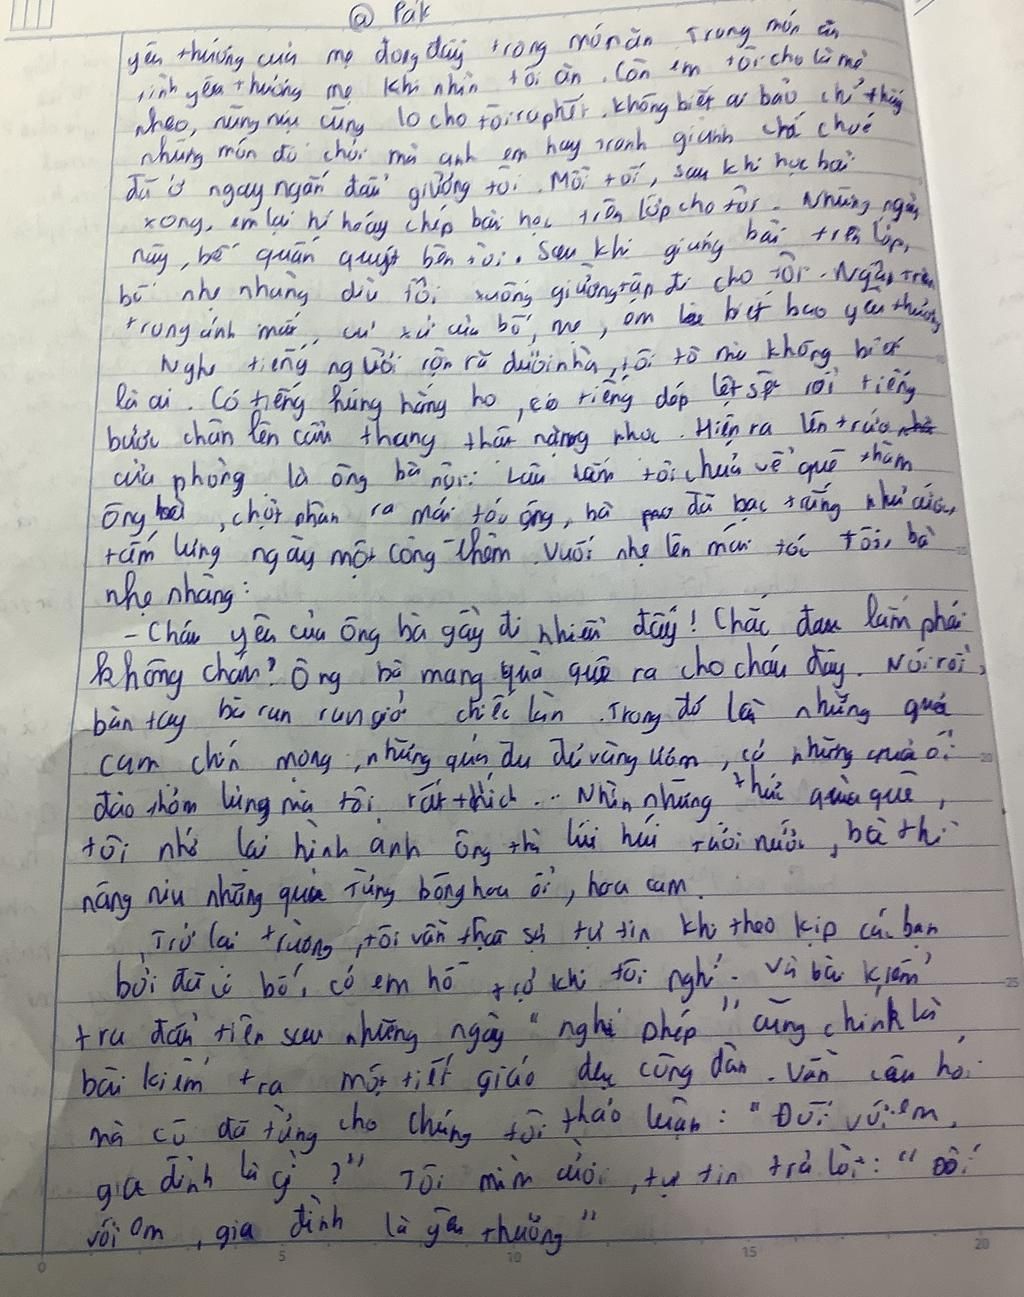 @ Pak
yêu thương của mẹ đong đầy trong món ăn Trong món ăn
tình yêu thương mẹ khi nhìn tôi ăn. Còn em tôi cho là mè
nheo, nũng nịu cũng lo cho tôi ra phết. Không biết ai bảo chỉ thấy
những món đồ chơi mà anh em hay tranh giành chí choé
đã ở ngay ngăn đầu giường tôi. Mỗi tối, sau khi học bài
xong, em lại hí hoáy chép bài học trên lớp cho tôi. Những ngày
này, bố quấn quýt bên tôi. Sau khi giảng bài trên lớp,
bố nhẹ nhàng dìu tôi xuống giường tập đi cho tôi. Ngập tràn
trong ánh mắt, cư xử của bố, mẹ, em là biết bao yêu thương
Nghe tiếng người rộn rã dưới nhà, tôi tò mò không biết
là ai. Có tiếng húng hắng ho, có tiếng dép lệt sệt rồi tiếng
bước chân lên cầu thang thật nặng nhọc. Hiện ra lên trước
cửa phòng là ông bà nội. Lâu lắm tôi chưa về quê thăm
Ông bà, chợt nhận ra mái tóc ông, bà đã bạc trắng như cước,
tấm lưng ngày một còng thêm. Vuốt nhẹ lên mái tóc tôi, bà
nhẹ nhàng:
- Cháu yêu của ông bà gầy đi nhiều đấy! Chắc đau lắm phải
không cháu? Ông bà mang quà quê ra cho cháu đây. Nói rồi,
bàn tay bà run run giở chiếc làn. Trong đó là những quả
cam chín mọng, những quả đu đủ vàng ươm, có những quả ổi
đào thơm lừng mà tôi rất thích... Nhìn những thức quà quê,
tôi nhớ lại hình ảnh ông thì lúi húi tưới nước, bà thì
nâng niu những quả từng bông hoa ổi, hoa cam.
Trở lại trường, tôi vẫn thật sự tự tin khi theo kịp các bạn
bởi đã có bố, có em hỗ trợ khi tôi nghỉ. Và bài kiểm
tra đầu tiên sau những ngày "nghỉ phép" cũng chính là
bài kiểm tra một tiết giáo dục công dân. Vẫn câu hỏi
mà cô đã từng cho chúng tôi thảo luận: "Đối với em,
gia đình là gì?" Tôi mỉm cười, tự tin trả lời: "Đối
với em, gia đình là yêu thương"